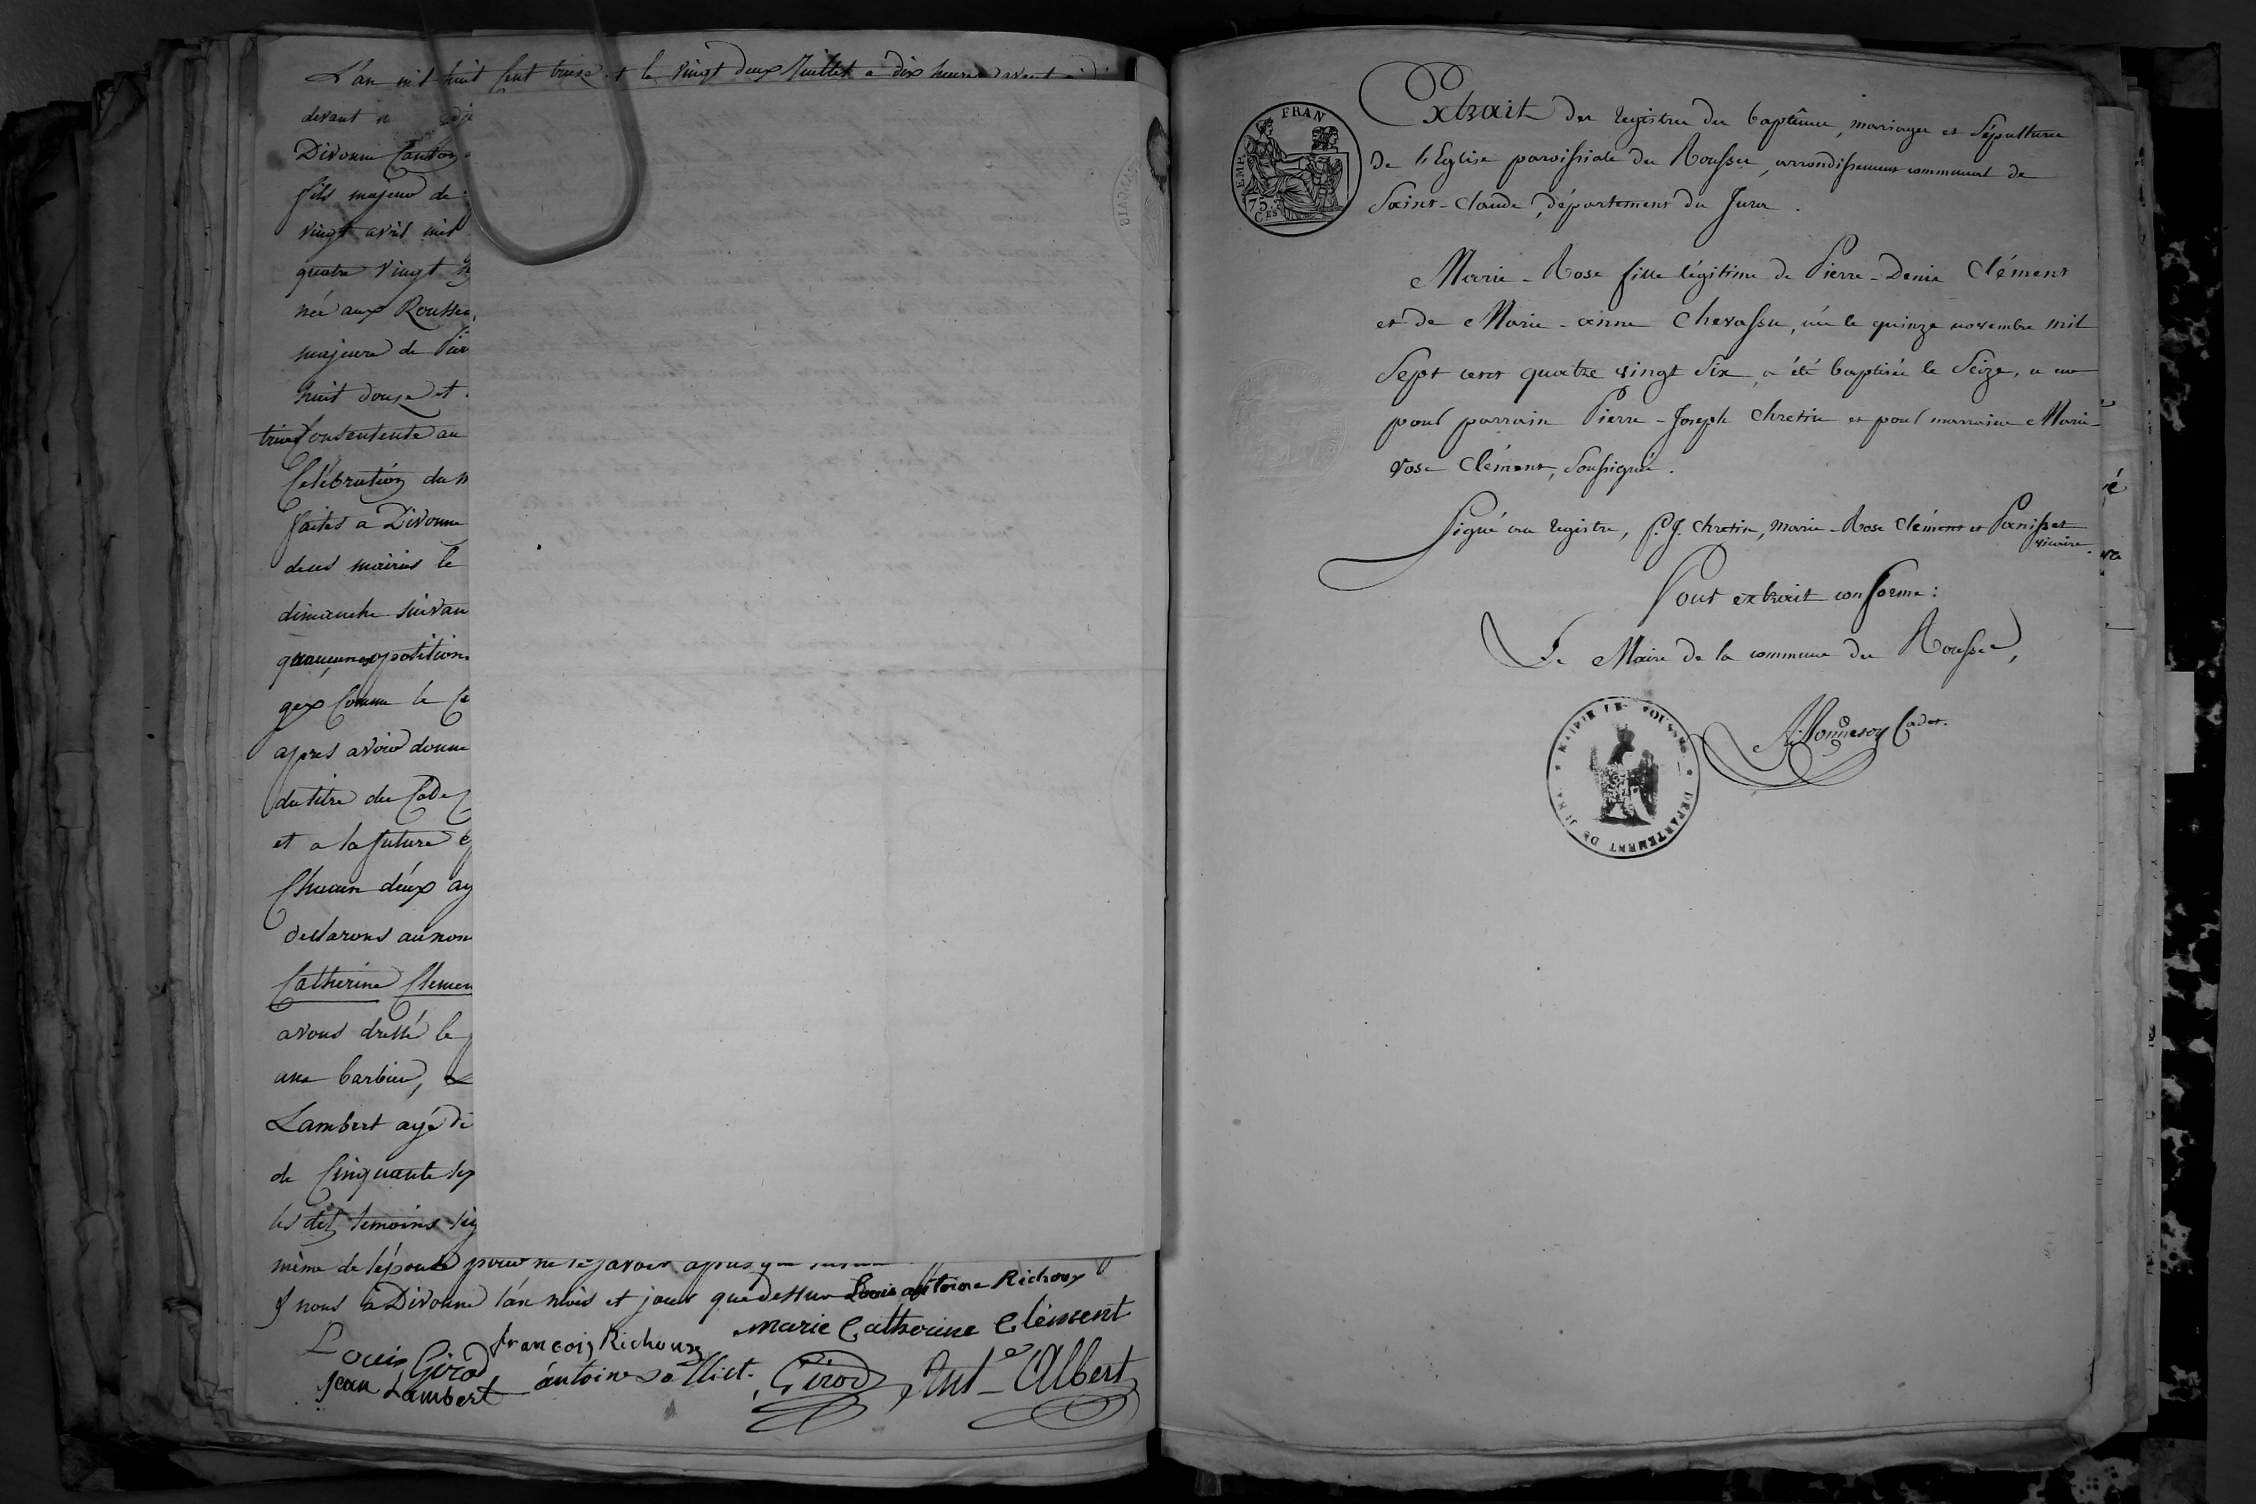 L'an mil huit cent treize et le vingt deux Juillet a dix heures avant
devant
Divonne Canton
fils majeur de
vingt avril mil
quatre vingt
née aux Rousses,
majeure de Pier
huit douze et
Consentente au
Célébration du m
faites a Divonne
deux mairies le
dimanche suivan
qu'aucune opposition
gex Comme le Ce
apres avoir donne
du titre du Code
et a la future é
Chacun d'eux ay
declarons au nom
Catherine Clemen
avons dressé le
ana barbier,
Lambert agé de
de Cinquante sep
les dits temoins sig
même de l'épouse pour ne le savoir apres que
& nous à Divonne l'an mois et jour que dessus Louis antoine Richoux
Louis Girod françois Richoux marie Catherine Clément
jean Lambert antoine Girod Ant Albert
EMP. FRAN
75 CES
Extrait des registres des baptêmes, mariages et Sépultures
de l'Eglise paroissiale des Rousses, arrondissement communal de
Saint-Claude, département du Jura.
Marie-Rose fille légitime de Pierre-Denis Clément
et de Marie-anne Chevassu, née le quinze novembre mil
Sept cent quatre vingt Six, a été baptisée le Seize, a eu
pour parrain Pierre-Joseph Chretin et pour marraine Marie-
rose Clément, Soussignés.
Signé au registre, P. J. Chretin, marie-Rose Clément et Panisset
vicaire.
Pour extrait conforme:
Le Maire de la commune des Rousses,
MAIRIE DES ROUSSES * DEPARTEMENT DU JURA *